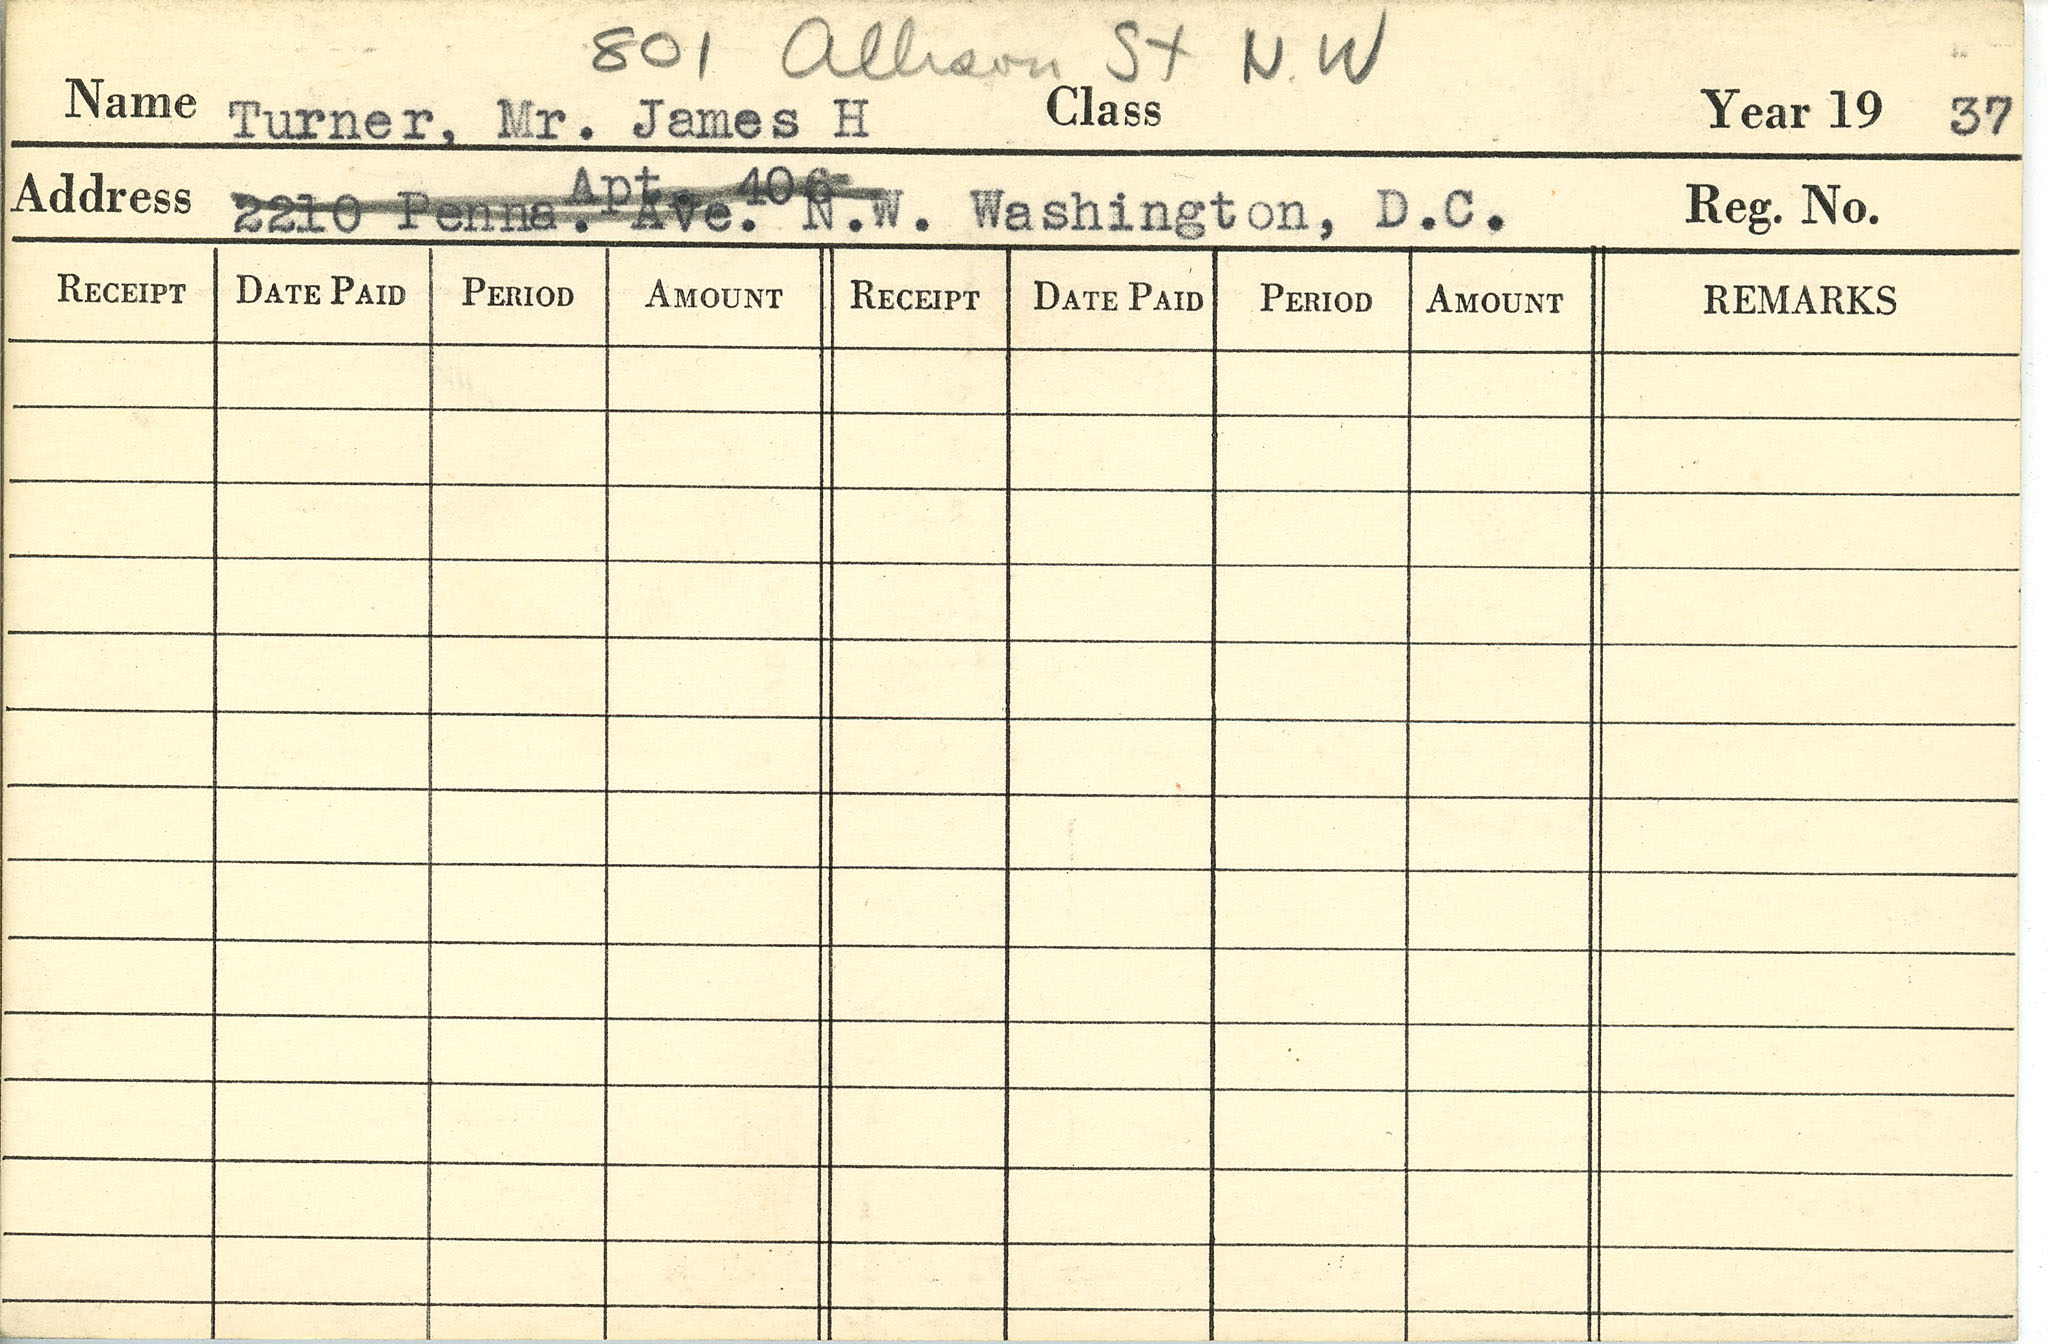 801 Allison St N.W
Name Turner, Mr. James H Class Year 19 37
Apt. 406
Address 2210 Penna. Ave. N.W. Washington, D.C. Reg. No.
RECEIPT DATE PAID PERIOD AMOUNT RECEIPT DATE PAID PERIOD AMOUNT REMARKS